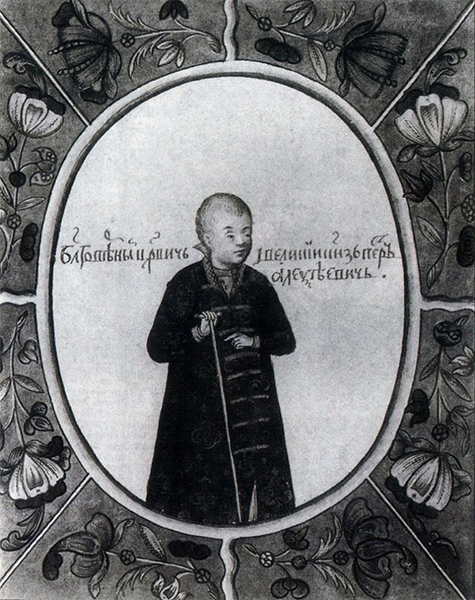 Бл҃говѣрны цр҃вичь івеликиі кн҃зь петръ
алеѯѣевичь.